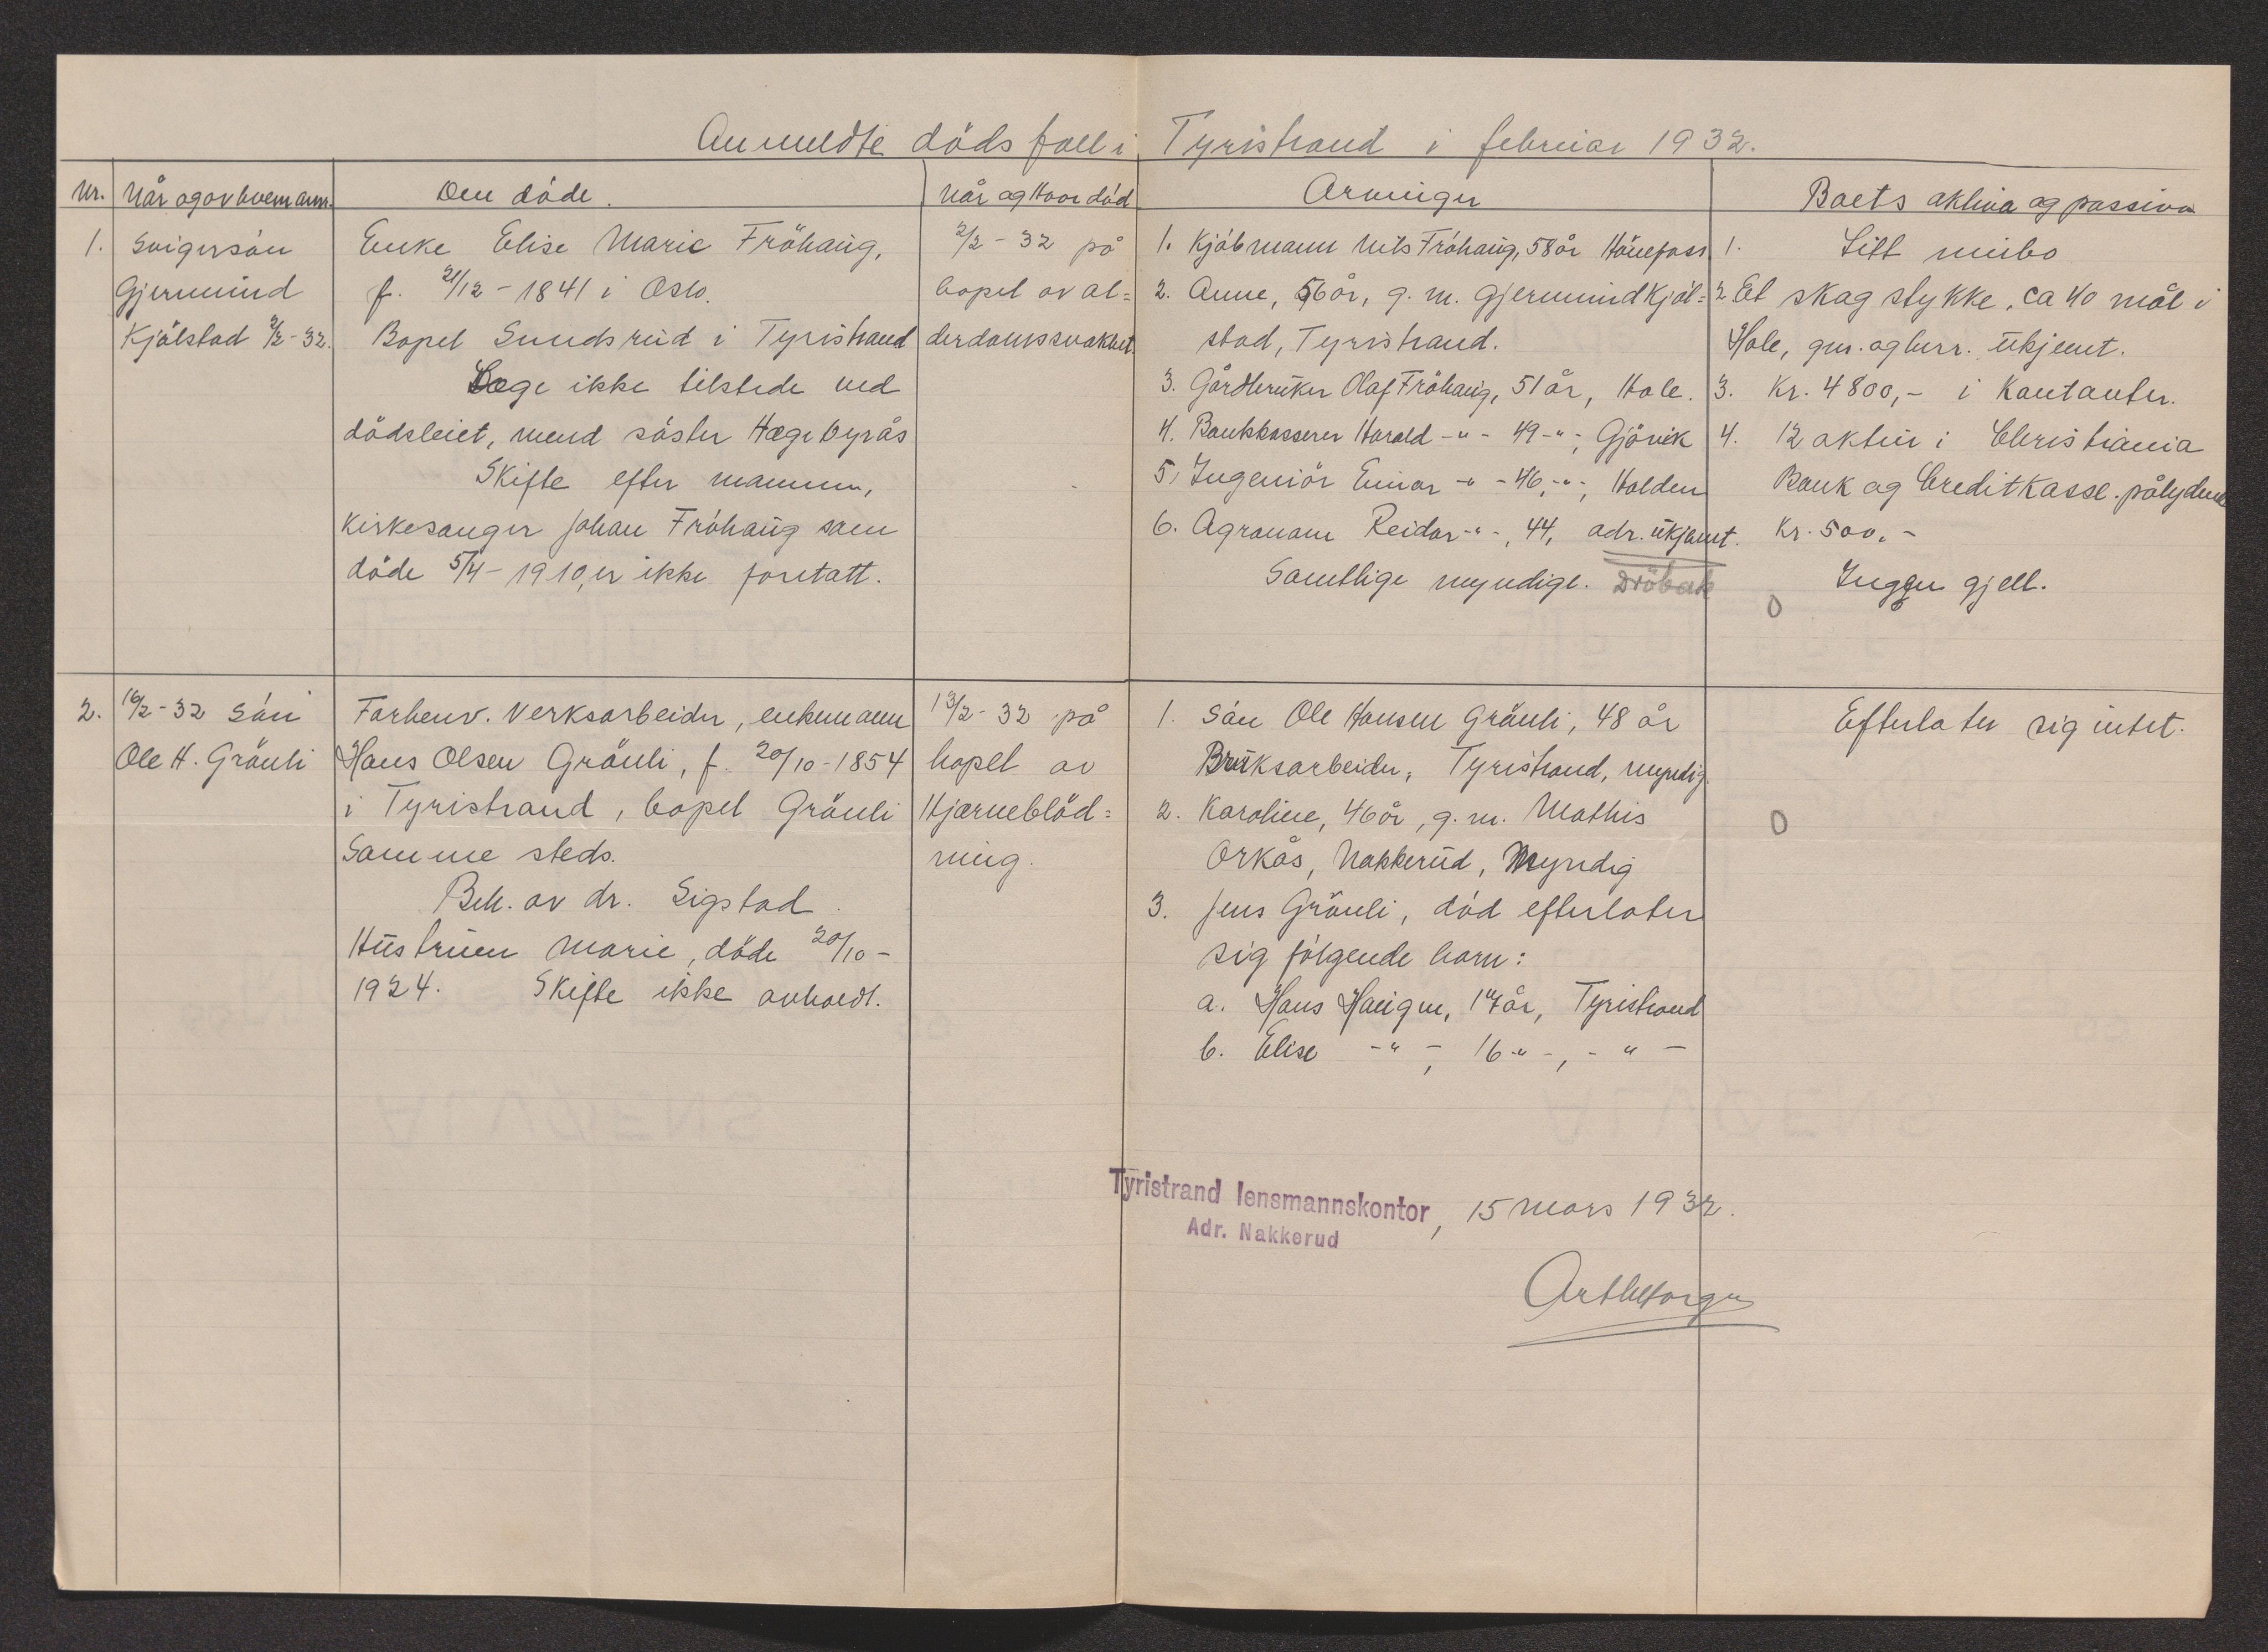 Anmeldte dödsfall i Tyristrand i februar 1932.
Nr. Når og av hvem anm. Den döde. Når og Hvor död Arvinger Boets aktiva og passiva
1. Svigersön
Gjermund
Kjölstad 2/2-32.
Enke Elise Marie Fröhaug,
f. 21/12-1841 i Oslo.
Bopel Sundsrud i Tyristrand
Læge ikke tilstede ved
dödsleiet, mend söster Hægebyrås
Skifte efter mannen,
kirkesanger Johan Fröhaug som
döde 5/4-1910, er ikke foretatt.
2/2-32 på
bopel av al=
derdomssvakhet.
1. Kjöbmann Nils Fröhaug, 58 år Hönefoss
2. Anne, 56 år, g. m. Gjermund Kjöl=
stad, Tyristrand.
3. Gårdbruker Olaf Fröhaug, 51 år, Hole.
4. Bankkasserer Harald -"- 49 -"-, Gjövik
5, Ingeniör Einar -"- 46, -"-, Halden
6. Agronom Reidar -"-, 44, adr. ukjent.
Samtlige myndige. Dröbak
1. Litt innbo
2 Et skogstykke, ca 40 mål i
Hole, gnr. og bnr. ukjent.
3. Kr. 4800,- i Kontanter.
4. 12 aktier i Christiania
Bank og Creditkasse. pålydende
Kr. 500.-
Inggen gjell.
0
2. 16/2-32 Sön
Ole H. Grönli
Forhenv. Verksarbeider, enkemann
Hans Olsen Grönli, f. 20/10-1854
i Tyristrand, bopel Grönli
Samme steds.
Beh. av dr. Sigstad.
Hustruen Marie, döde 20/10-
1924. Skifte ikke avholdt.
13/2-32 på
bopel av
Hjerneblöd=
ning.
1. Sön Ole Hansen Grönli, 48 år
Bruksarbeider, Tyristrand, myndig.
2. Karoline, 46 år, g. m. Mathis
Orkås, Nakkerud, Myndig
3. Jens Grönli, död efterlater
sig fölgende barn:
a. Hans Haugen, 17 år, Tyristrand
b. Elise -"-, 16 -"-, -"-
Efterlater sig intet.
0
Tyristrand lensmannskontor, 15 mars 1932.
Adr. Nakkerud